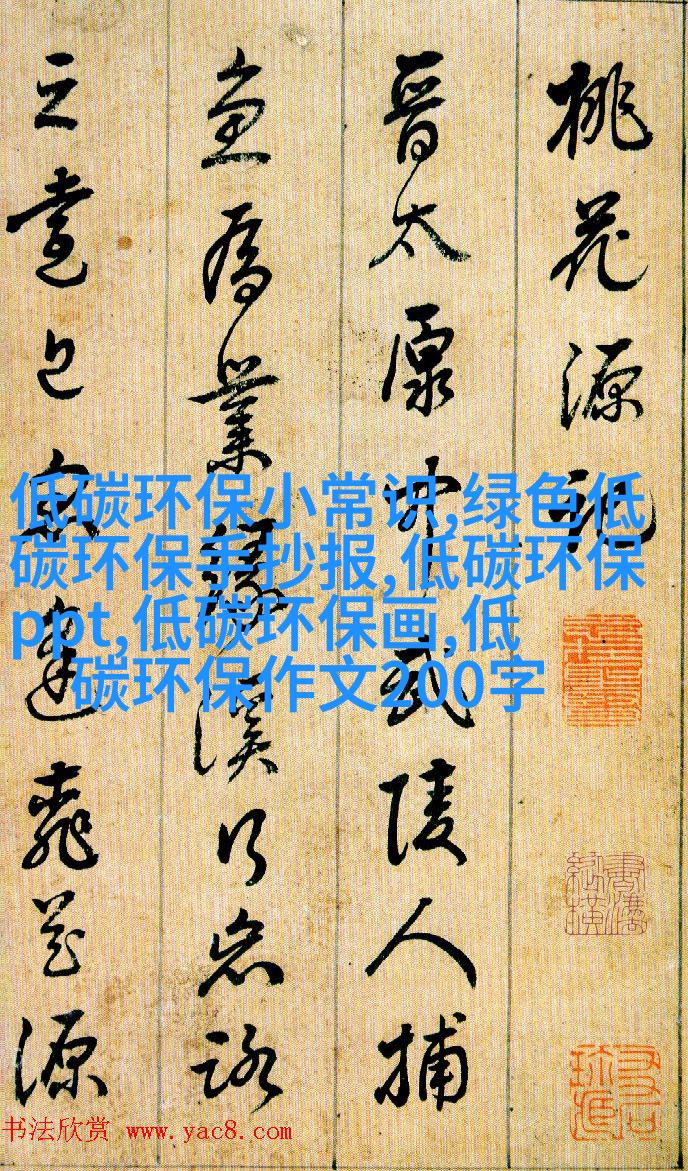 桃花源記
晉太原中武陵人捕
魚為業緣溪行忘路
之遠近忽逢桃花源
低碳环保小常识,绿色低
碳环保手抄报,低碳环保
ppt,低碳环保画,低
碳环保作文200字
书法欣赏 www.yac8.com